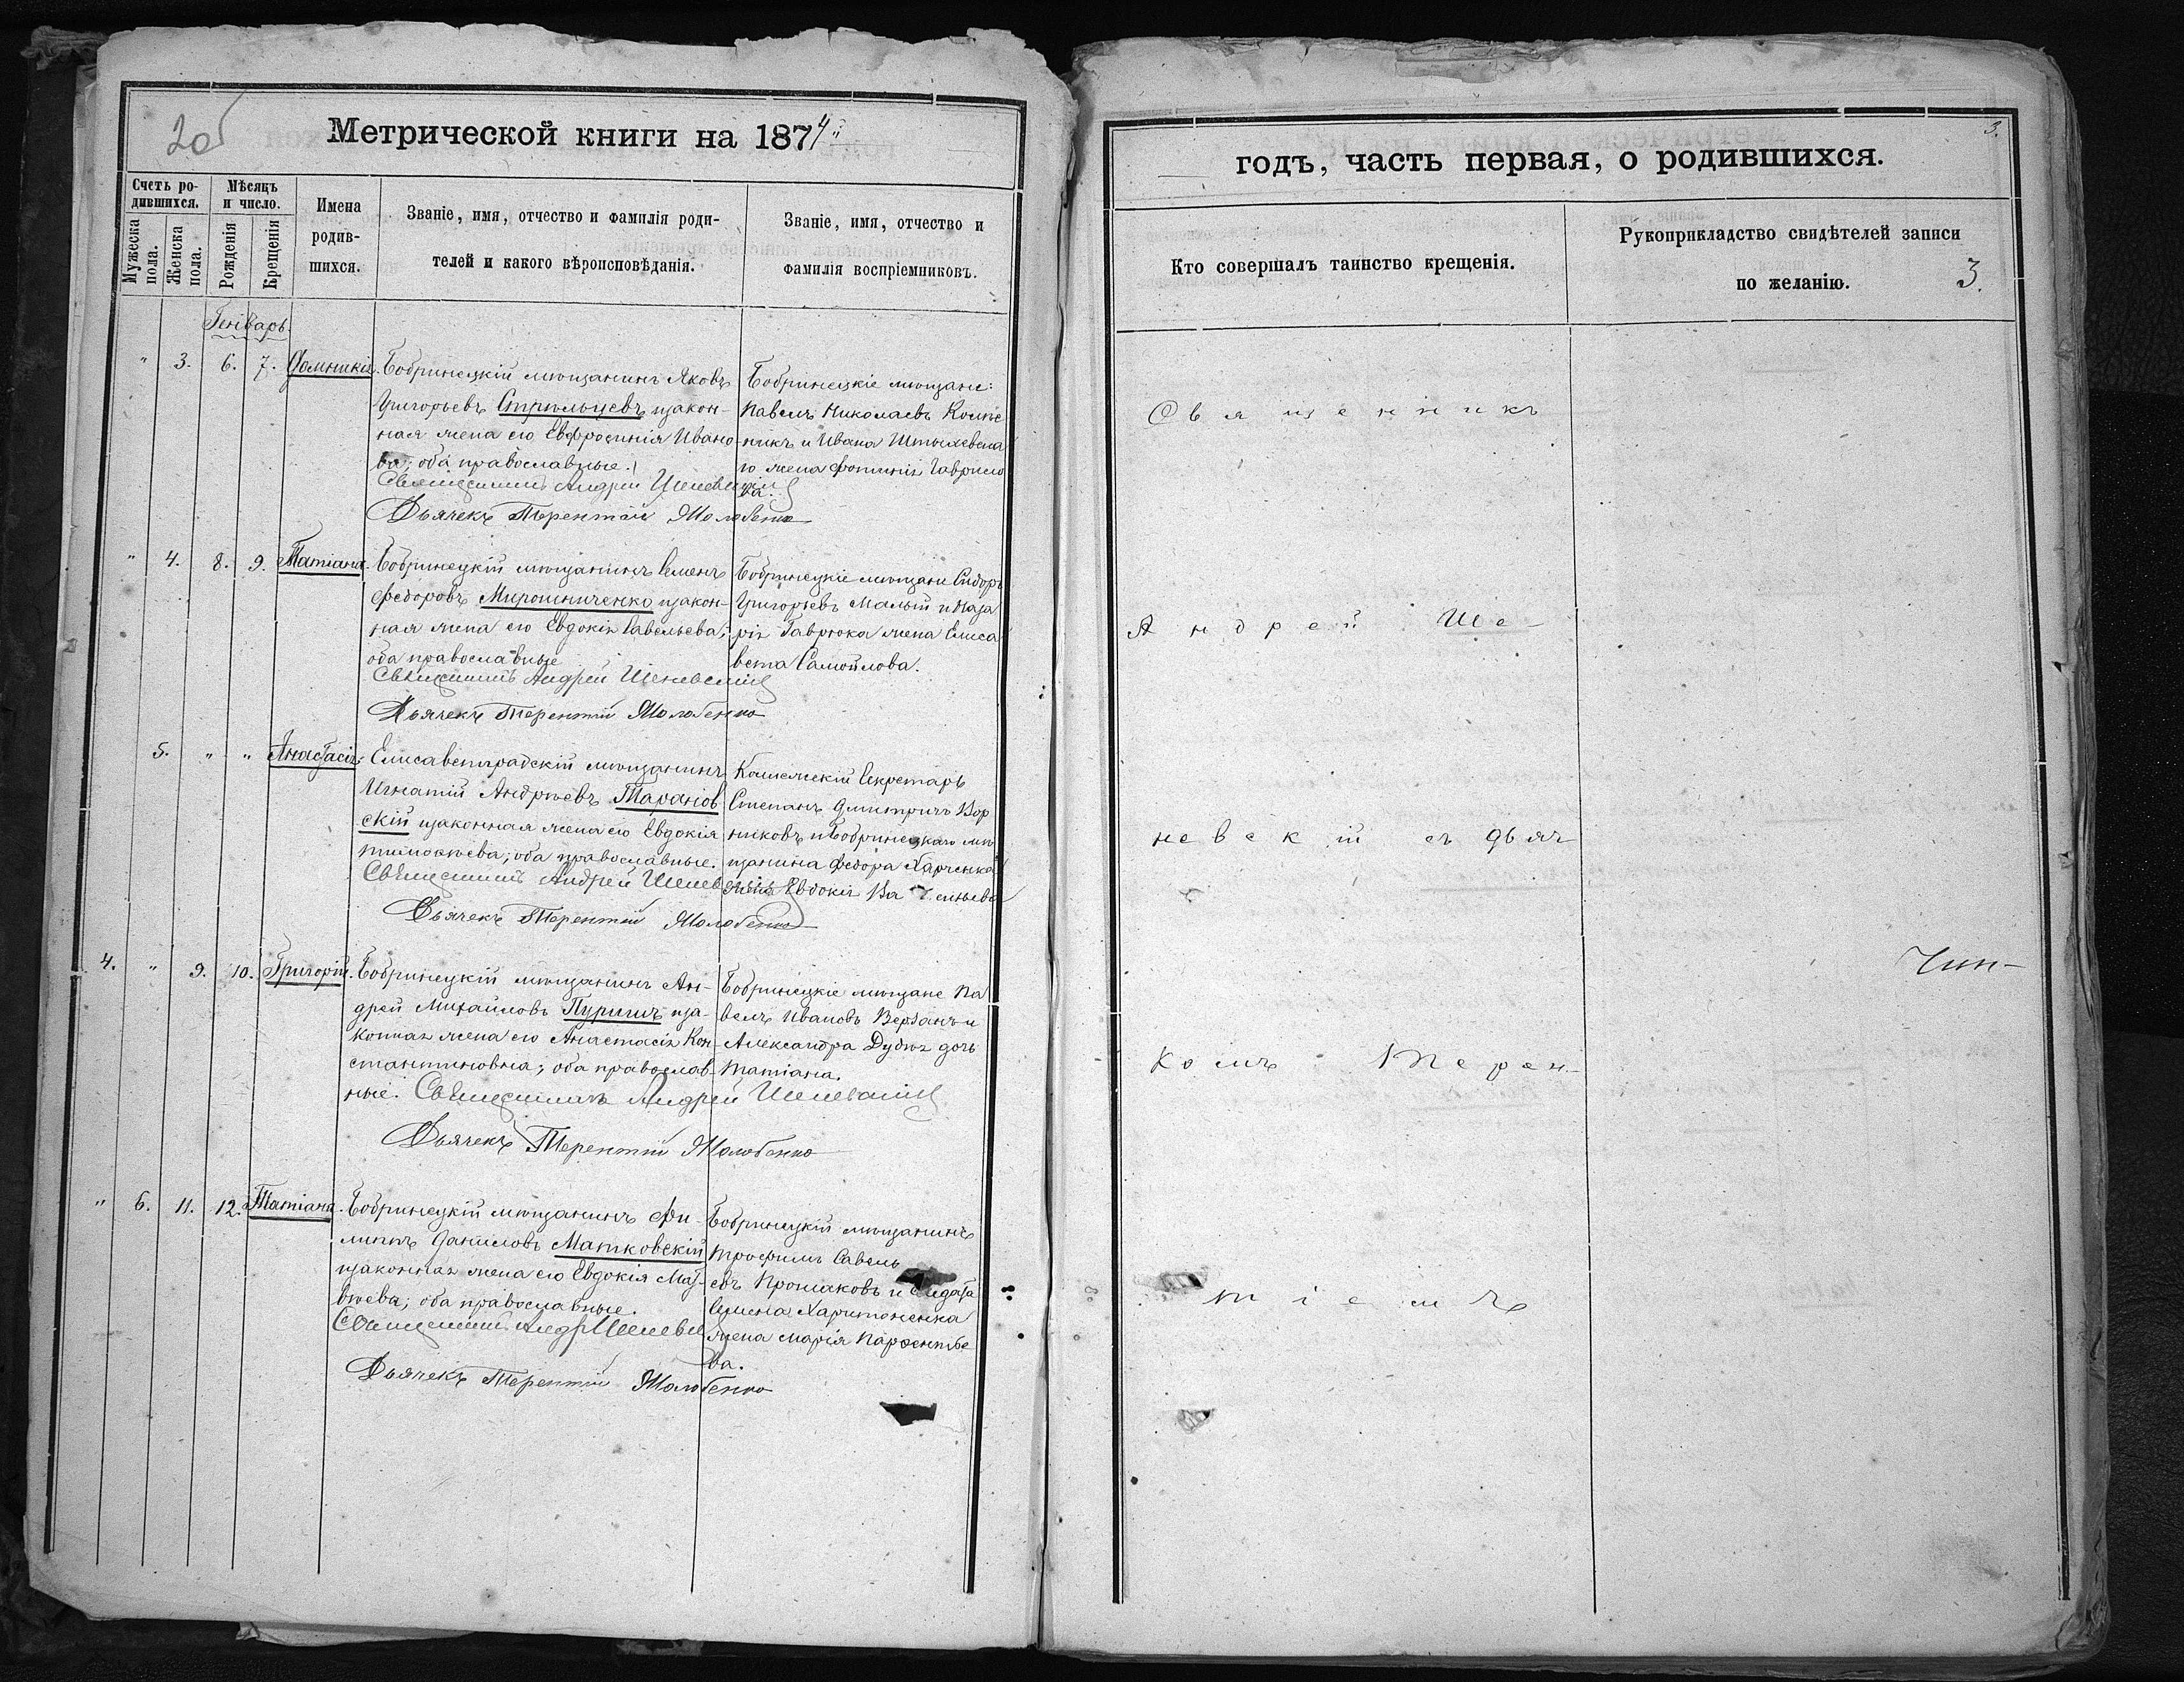 2об
Метрической книги на 1874й
Счетъ ро-
дившихся.
Мѣсяцъ
и число.
Мужеска
пола.
Женска
пола.
Рожденія
Крещенія
Имена
родив-
шихся.
Званіе, имя, отчество и фамилія роди-
телей и какого вѣроисповѣданія.
Званіе, имя, отчество и
фамилія воспріемниковъ.
Генварь.
" 3. 6. 7. Домникія.
Бобринецкій мѣщанинъ Яковъ
Григорьевъ Стрѣльцевъ изакон-
ная жена его Евфросинія Ивано-
ва; оба православные.
Священникъ Андрей Шеневскій
Дьячекъ Терентій Молобенко
Бобринецкіе мѣщане:
Павелъ Николаевъ
никъ и Ивана
го жена Фотинія Гаврило
ва.
" 4. 8. 9. Татіана.
Бобринецкій мѣщанинъ Семенъ
Федоровъ Мирошниченко изакон-
ная жена его Евдокія Савельева;
оба православные
Священникъ Андрей Шеневскій
Дьячекъ Терентій Молобенко
Бобринецкіе мѣщане Сидоръ
Григорьевъ Малый и Наза
рія Гаврюка жена Елиса
вета Самойлова.
5. " " Анастасія.
Елисаветградскій мѣщанинъ
Игнатій Андреевъ Таранов
скій изаконная жена его Евдокія
Тимофѣева; оба православные.
Священникъ Андрей Шеневскій
Дьячекъ Терентій Молобенко
Секретарь
Степанъ Дмитричъ Вор
никовъ и Бобринецкаго мѣ
щанина Федора Харченка
жена Евдокія
4. " 9. 10. Григорій.
Бобринецкій мѣщанинъ Ан-
дрей Михайловъ Пуричъ иза-
конная жена его Анастасія Кон-
стантиновна; оба православ-
ные. Священникъ Андрей Шеневскій
Дьячекъ Терентій Молобенко
Бобринецкіе мѣщане Па
велъ Ивановъ Верзанъ и
Александра Дудки дочь
Татіана.
" 6. 11. 12. Татіана.
Бобринецкій мѣщанинъ Фи-
липпъ Даниловъ Матковскій
изаконная жена его Евдокія Мат-
вѣева; оба православные.
Священникъ Андр Шеневскій
Дьячекъ Терентій Молобенко
Бобринецкій мѣщанинъ
Трофимъ Савель
евъ Прошаковъ и Солдата
Семена Харитоненка
жена Марія Парфентье
ва.
3.
годъ, часть первая, о родившихся.
Кто совершалъ таинство крещенія.
Рукоприкладство свидѣтелей записи
по желанію.
3.
Священникъ
Андрей Ше-
невскій съ дьяч
Чин-
комъ Терен-
тіемъ